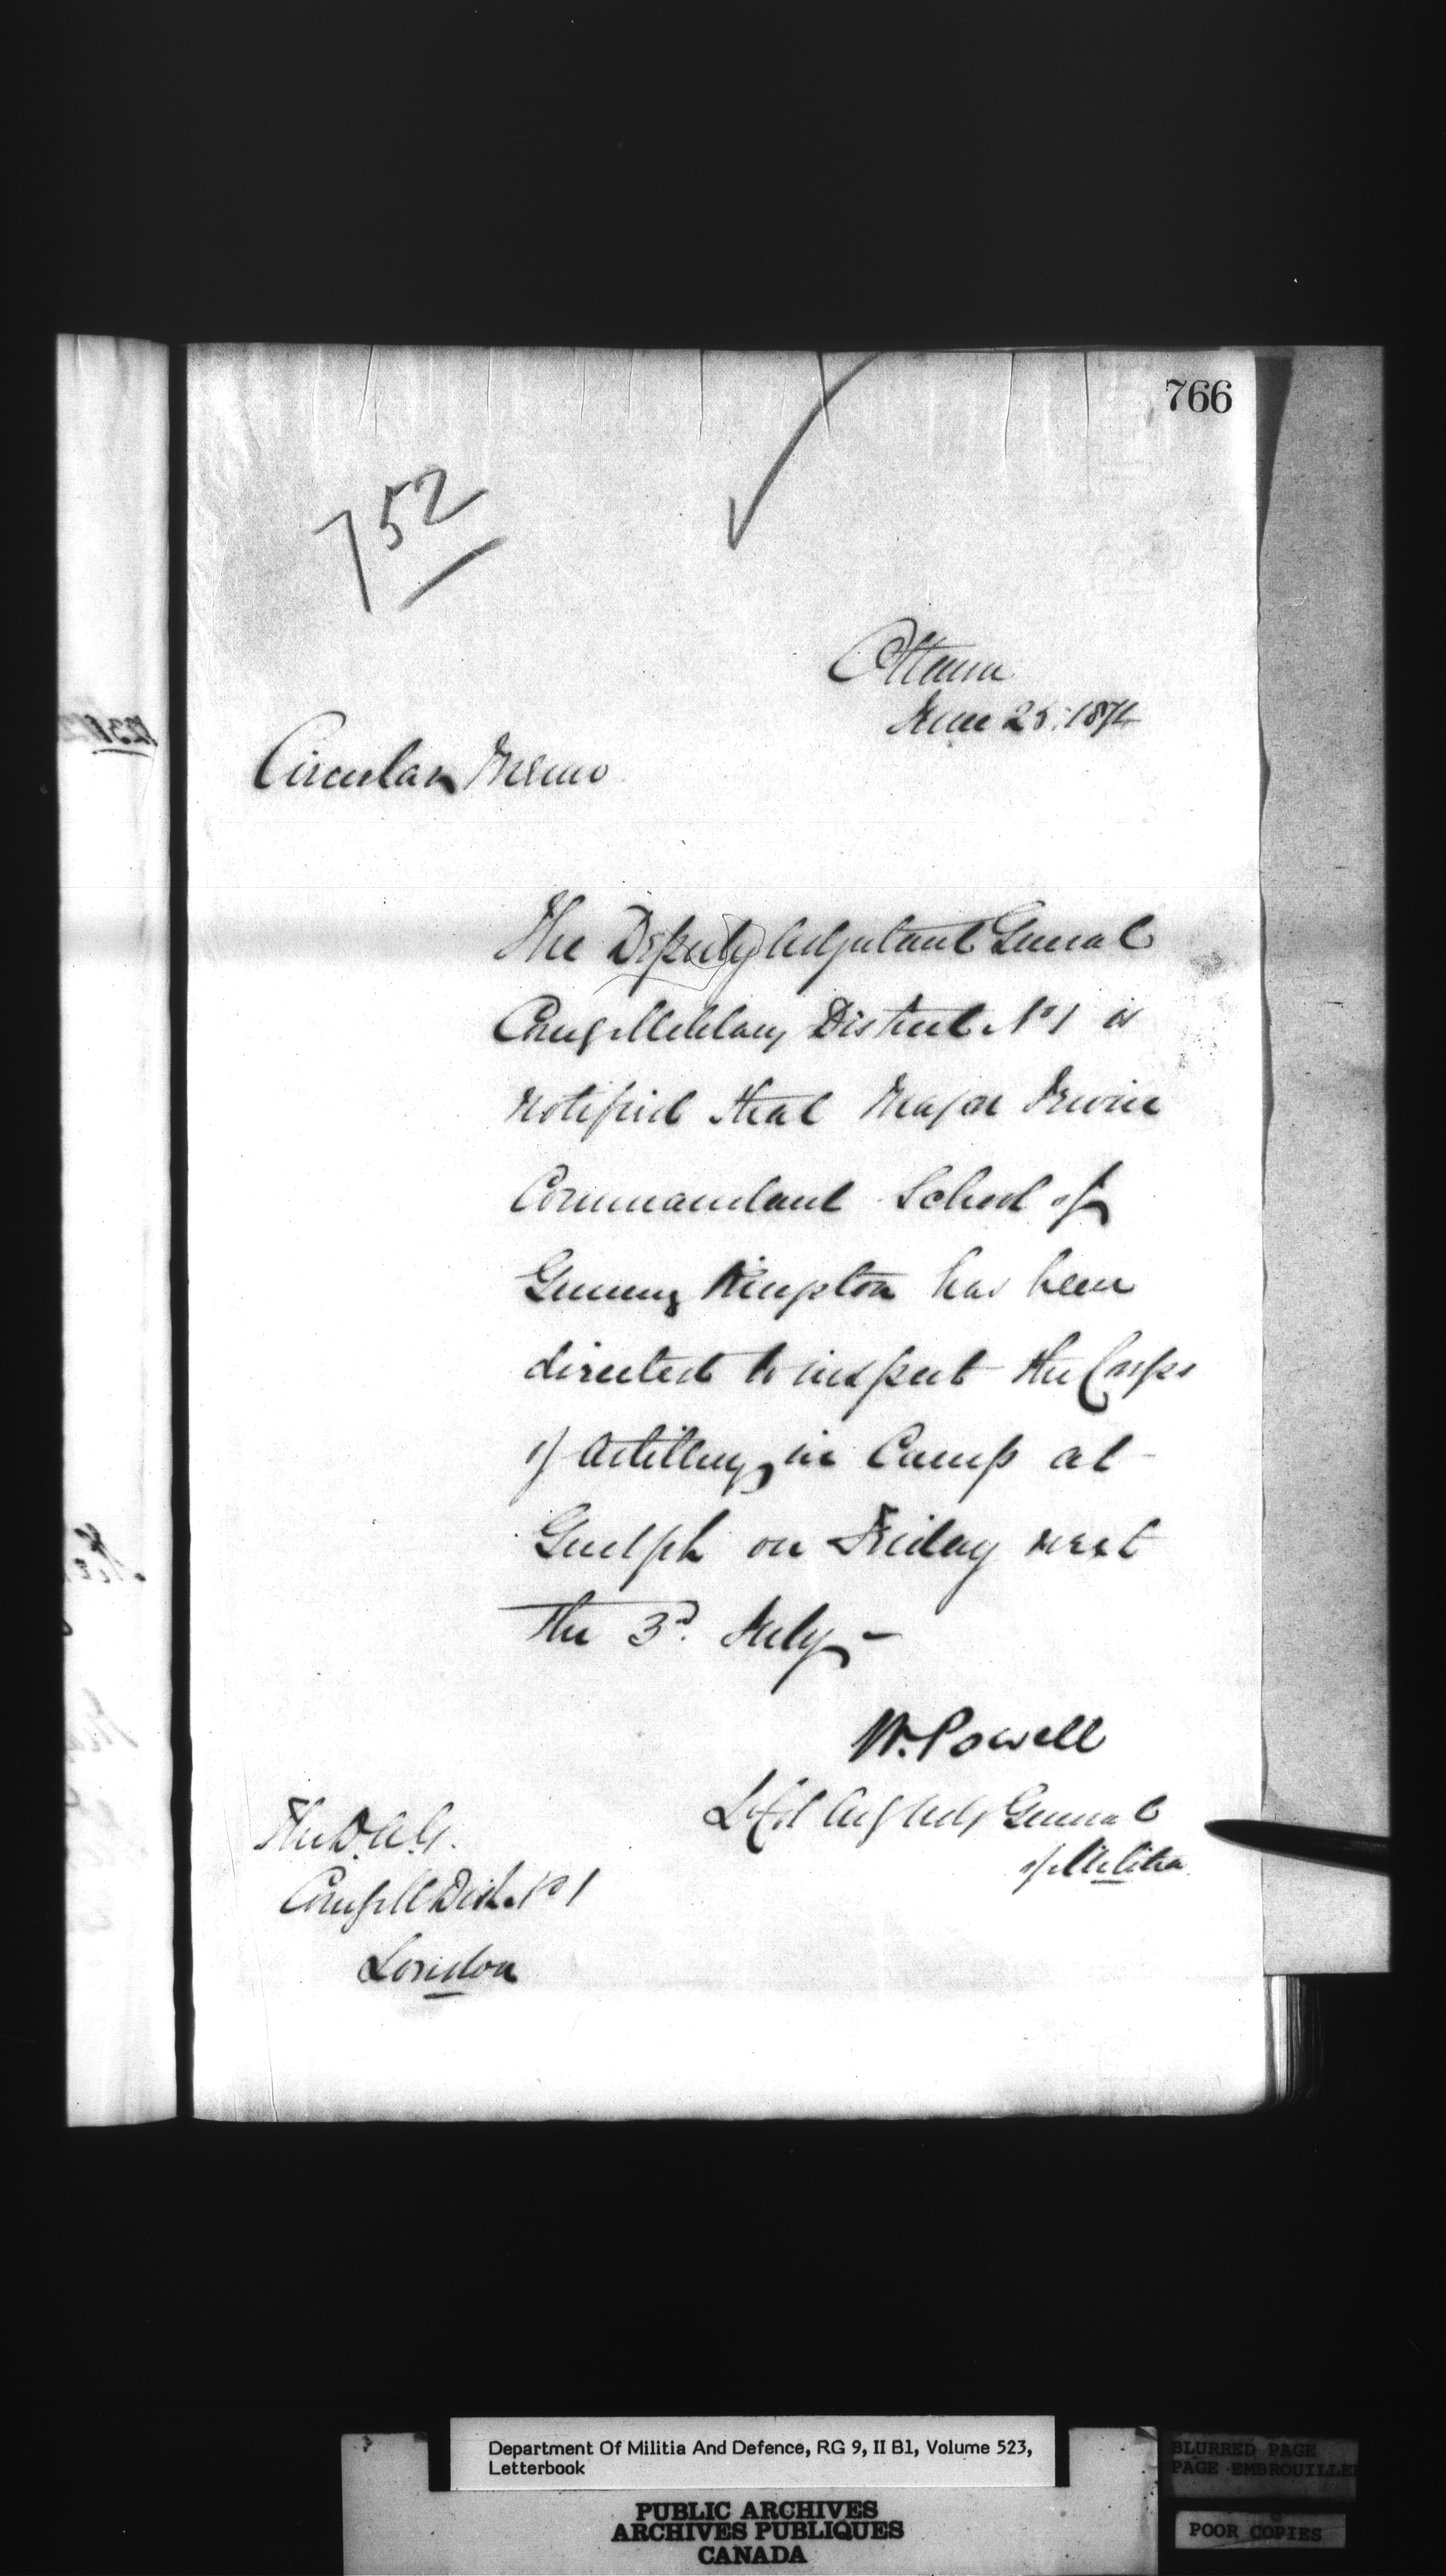 766
752
Ottawa
June 25. 1874
Circular Memo
The Deputy Adjutant General
Comg Military District No 1 is
notified that Major Irwin
Commandant School of
Gunnery Kingston has been
directed to inspect the Corps
of Artillery in Camp at
Guelph on Friday next
the 3d. July –
W. Powell
Lt Col Actg Adjt General
of Militia
The D.A.G.
Comg M Dist. No 1
London
Department Of Militia And Defence, RG 9, II B1, Volume 523,
Letterbook
BLURRED PAGE
PAGE EMBROUILLE
POOR COPIES
PUBLIC ARCHIVES
ARCHIVES PUBLIQUES
CANADA